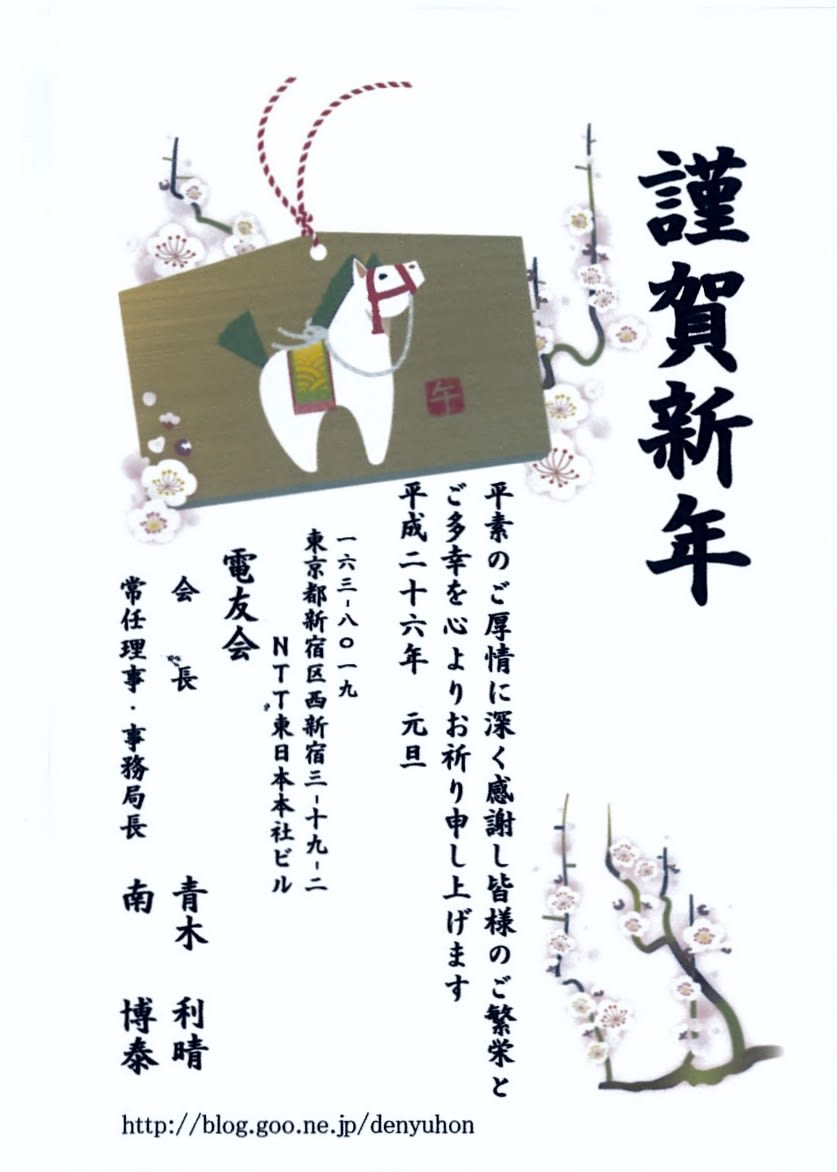 謹賀新年
平素のご厚情に深く感謝し皆様のご繁栄と
ご多幸を心よりお祈り申し上げます
平成二十六年 元旦
一六三-八〇一九
東京都新宿区西新宿三-十九-二
NTT東日本本社ビル
電友会
会長 青木 利晴
常任理事・事務局長 南 博泰
午
http://blog.goo.ne.jp/denyuhon